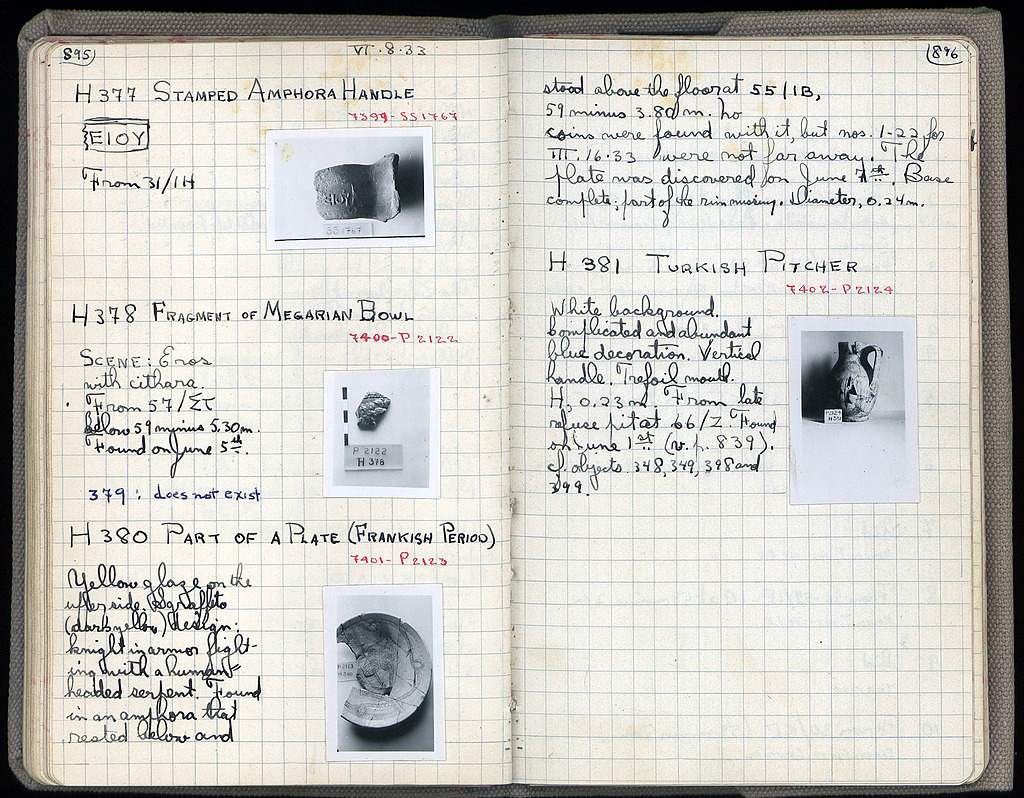 895
VI.8.33
H 377 STAMPED AMPHORA HANDLE
7399-SS1767
EIOY
From 31/1H
SS 1767
H 378 FRAGMENT OF MEGARIAN BOWL
7400-P 2122
SCENE: Eros
with cithara.
From 57/ΣΤ
below 59 minus 5.30 m.
Found on June 5th.
P 2122
H 378
379: does not exist
H 380 PART OF A PLATE (FRANKISH PERIOD)
7401-P2123
Yellow glaze on the
upper side. Sgraffito
(dark yellow) design:
knight in armor fight-
ing with a human-
headed serpent. Found
in an amphora that
rested below and
P 2123
H 380
896
stood above the floor at 55/1B,
59 minus 3.80 m. No
coins were found with it, but nos. 1-22 for
III.16.33 were not far away. The
plate was discovered on June 7th. Base
complete; part of the rim missing. Diameter, 0.24 m.
H 381 TURKISH PITCHER
7402-P2124
White background.
Complicated and abundant
blue decoration. Vertical
handle. Trefoil mouth.
H, 0.23 m. From late
refuse pit at 66/Z. Found
on June 1st (v. p. 839).
cf. objects 348, 349, 398 and
399.
P2124
H 381